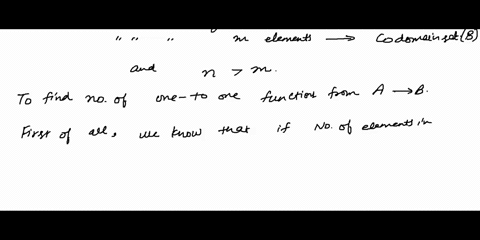 " " " m elements → Codomain set (B)
and n > m.
To find no. of one-to one function from A → B.
First of all, we know that if No. of elements in